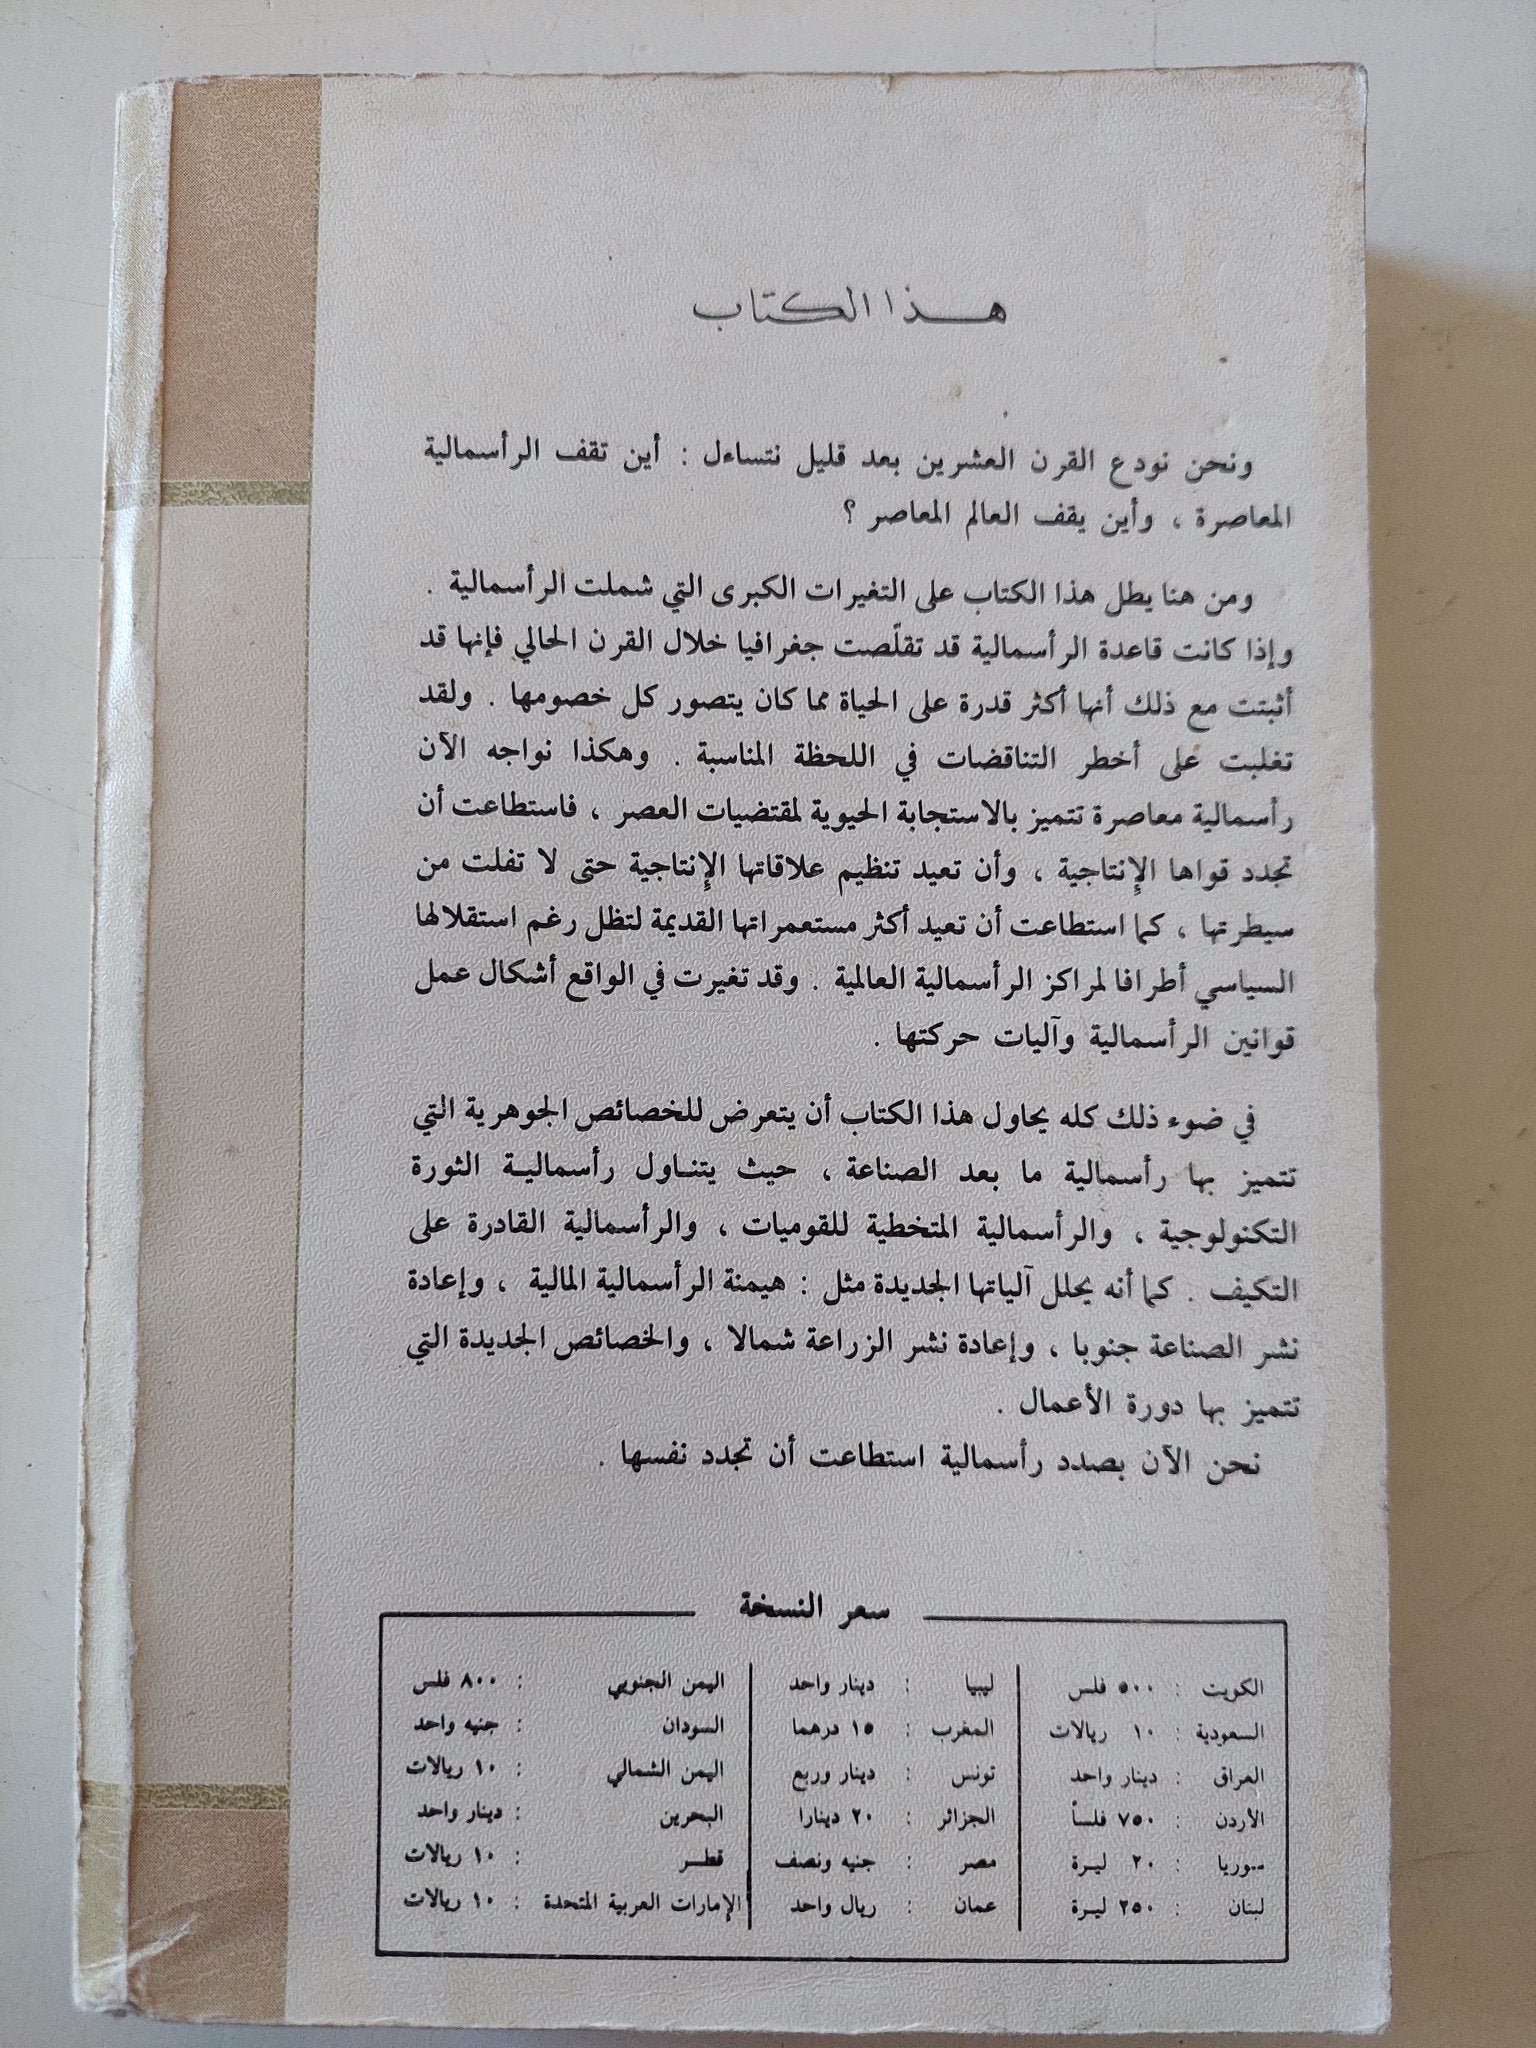 هذا الكتاب
ونحن نودع القرن العشرين بعد قليل نتساءل : أين تقف الرأسمالية
المعاصرة ، وأين يقف العالم المعاصر ؟
ومن هنا يطل هذا الكتاب على التغيرات الكبرى التي شملت الرأسمالية .
وإذا كانت قاعدة الرأسمالية قد تقلّصت جغرافيا خلال القرن الحالي فإنها قد
أثبتت مع ذلك أنها أكثر قدرة على الحياة مما كان يتصور كل خصومها . ولقد
تغلبت على أخطر التناقضات في اللحظة المناسبة . وهكذا نواجه الآن
رأسمالية معاصرة تتميز بالاستجابة الحيوية لمقتضيات العصر ، فاستطاعت أن
تجدد قواها الإنتاجية ، وأن تعيد تنظيم علاقاتها الإنتاجية حتى لا تفلت من
سيطرتها ، كما استطاعت أن تعيد أكثر مستعمراتها القديمة لتظل رغم استقلالها
السياسي أطرافا لمراكز الرأسمالية العالمية . وقد تغيرت في الواقع أشكال عمل
قوانين الرأسمالية وآليات حركتها .
في ضوء ذلك كله يحاول هذا الكتاب أن يتعرض للخصائص الجوهرية التي
تتميز بها رأسمالية ما بعد الصناعة ، حيث يتناول رأسمالية الثورة
التكنولوجية ، والرأسمالية المتخطية للقوميات ، والرأسمالية القادرة على
التكيف . كما أنه يحلل آلياتها الجديدة مثل : هيمنة الرأسمالية المالية ، وإعادة
نشر الصناعة جنوبا ، وإعادة نشر الزراعة شمالا ، والخصائص الجديدة التي
تتميز بها دورة الأعمال .
نحن الآن بصدد رأسمالية استطاعت أن تجدد نفسها .
سعر النسخة
الكويت : ٥٠٠ فلس
السعودية : ١٠ ريالات
العراق : دينار واحد
الأردن : ٧٥٠ فلساً
سوريا : ٢٠ ليرة
لبنان : ٢٥٠ ليرة
ليبيا : دينار واحد
المغرب : ١٥ درهما
تونس : دينار وربع
الجزائر : ٢٠ دينارا
مصر : جنيه ونصف
عمان : ريال واحد
اليمن الجنوبي : ٨٠٠ فلس
السودان : جنيه واحد
اليمن الشمالي : ١٠ ريالات
البحرين : دينار واحد
قطر : ١٠ ريالات
الإمارات العربية المتحدة : ١٠ ريالات